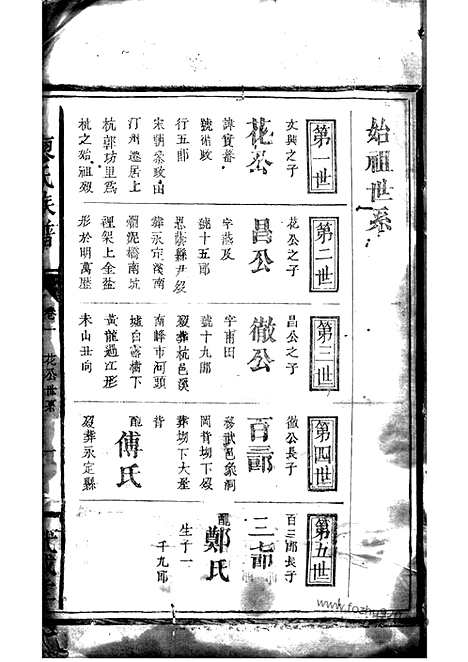 始祖世系
第一世
文興之子
花公
諱實蕃
號循政
行五郎
宋朝叅政由
汀州遷居上
杭郭功里爲
杭之始祖歿
第二世
花公之子
昌公
字燕及
號十五郎
恩蔭縣尹歿
葬永定溪南
瀾泥橋南坑
裡架上金盆
形於明萬曆
第三世
昌公之子
徹公
字甫田
號十九郎
歿葬杭邑溪
南峰市河頭
墟白窰樹下
黃龍過江形
未山丑向
第四世
徹公長子
百三郎
移武邑象洞
岡背坳下歿
葬坳下大產
背
配
傅氏
歿葬永定縣
第五世
百三郎長子
三郎
配
鄭氏
生子一
千九郎
廖氏族譜
卷一
花公世系
一
www.fozhu